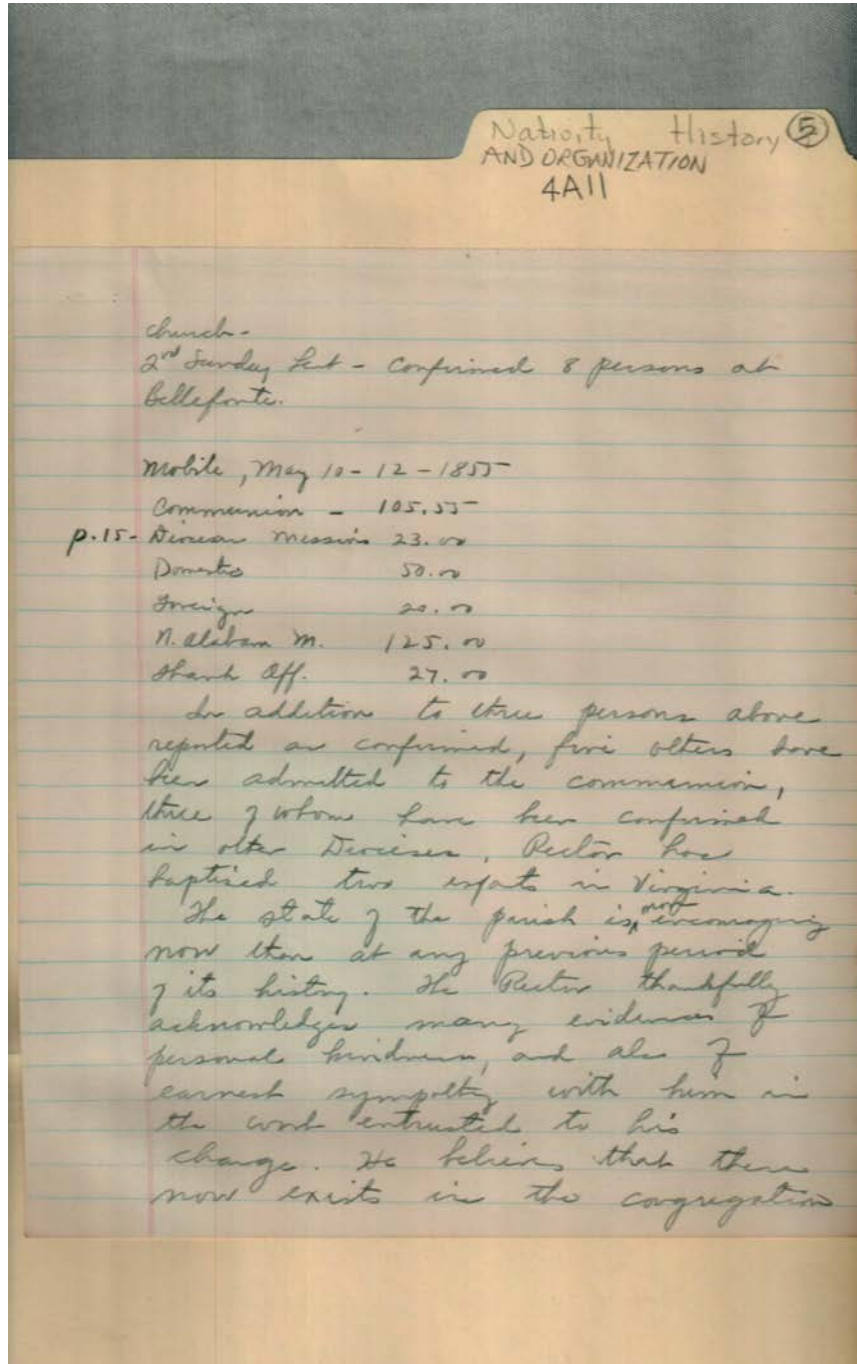 Nativity History 5
AND ORGANIZATION
4A11
church-
2nd Sunday Lent - Confirmed 8 persons at
Bellefonte.
Mobile, May 10-12-1855
Communion - 105.55
p.15- Diocesan Missions 23.00
Domestic 50.00
Foreign 20.00
N. Alabam M. 125.00
Thank Off. 27.00
In addition to three persons above
reported as confirmed, five others have
been admitted to the communion,
three of whom have been confirmed
in other Dioceses, Rector has
baptised two infants in Virginia.
The state of the parish is more encouraging
now than at any previous period
of its history. The Rector thankfully
acknowledges many evidences of
personal kindness, and also of
earnest sympathy with him in
the work entrusted to his
charge. He believes that there
now exists in the congregation